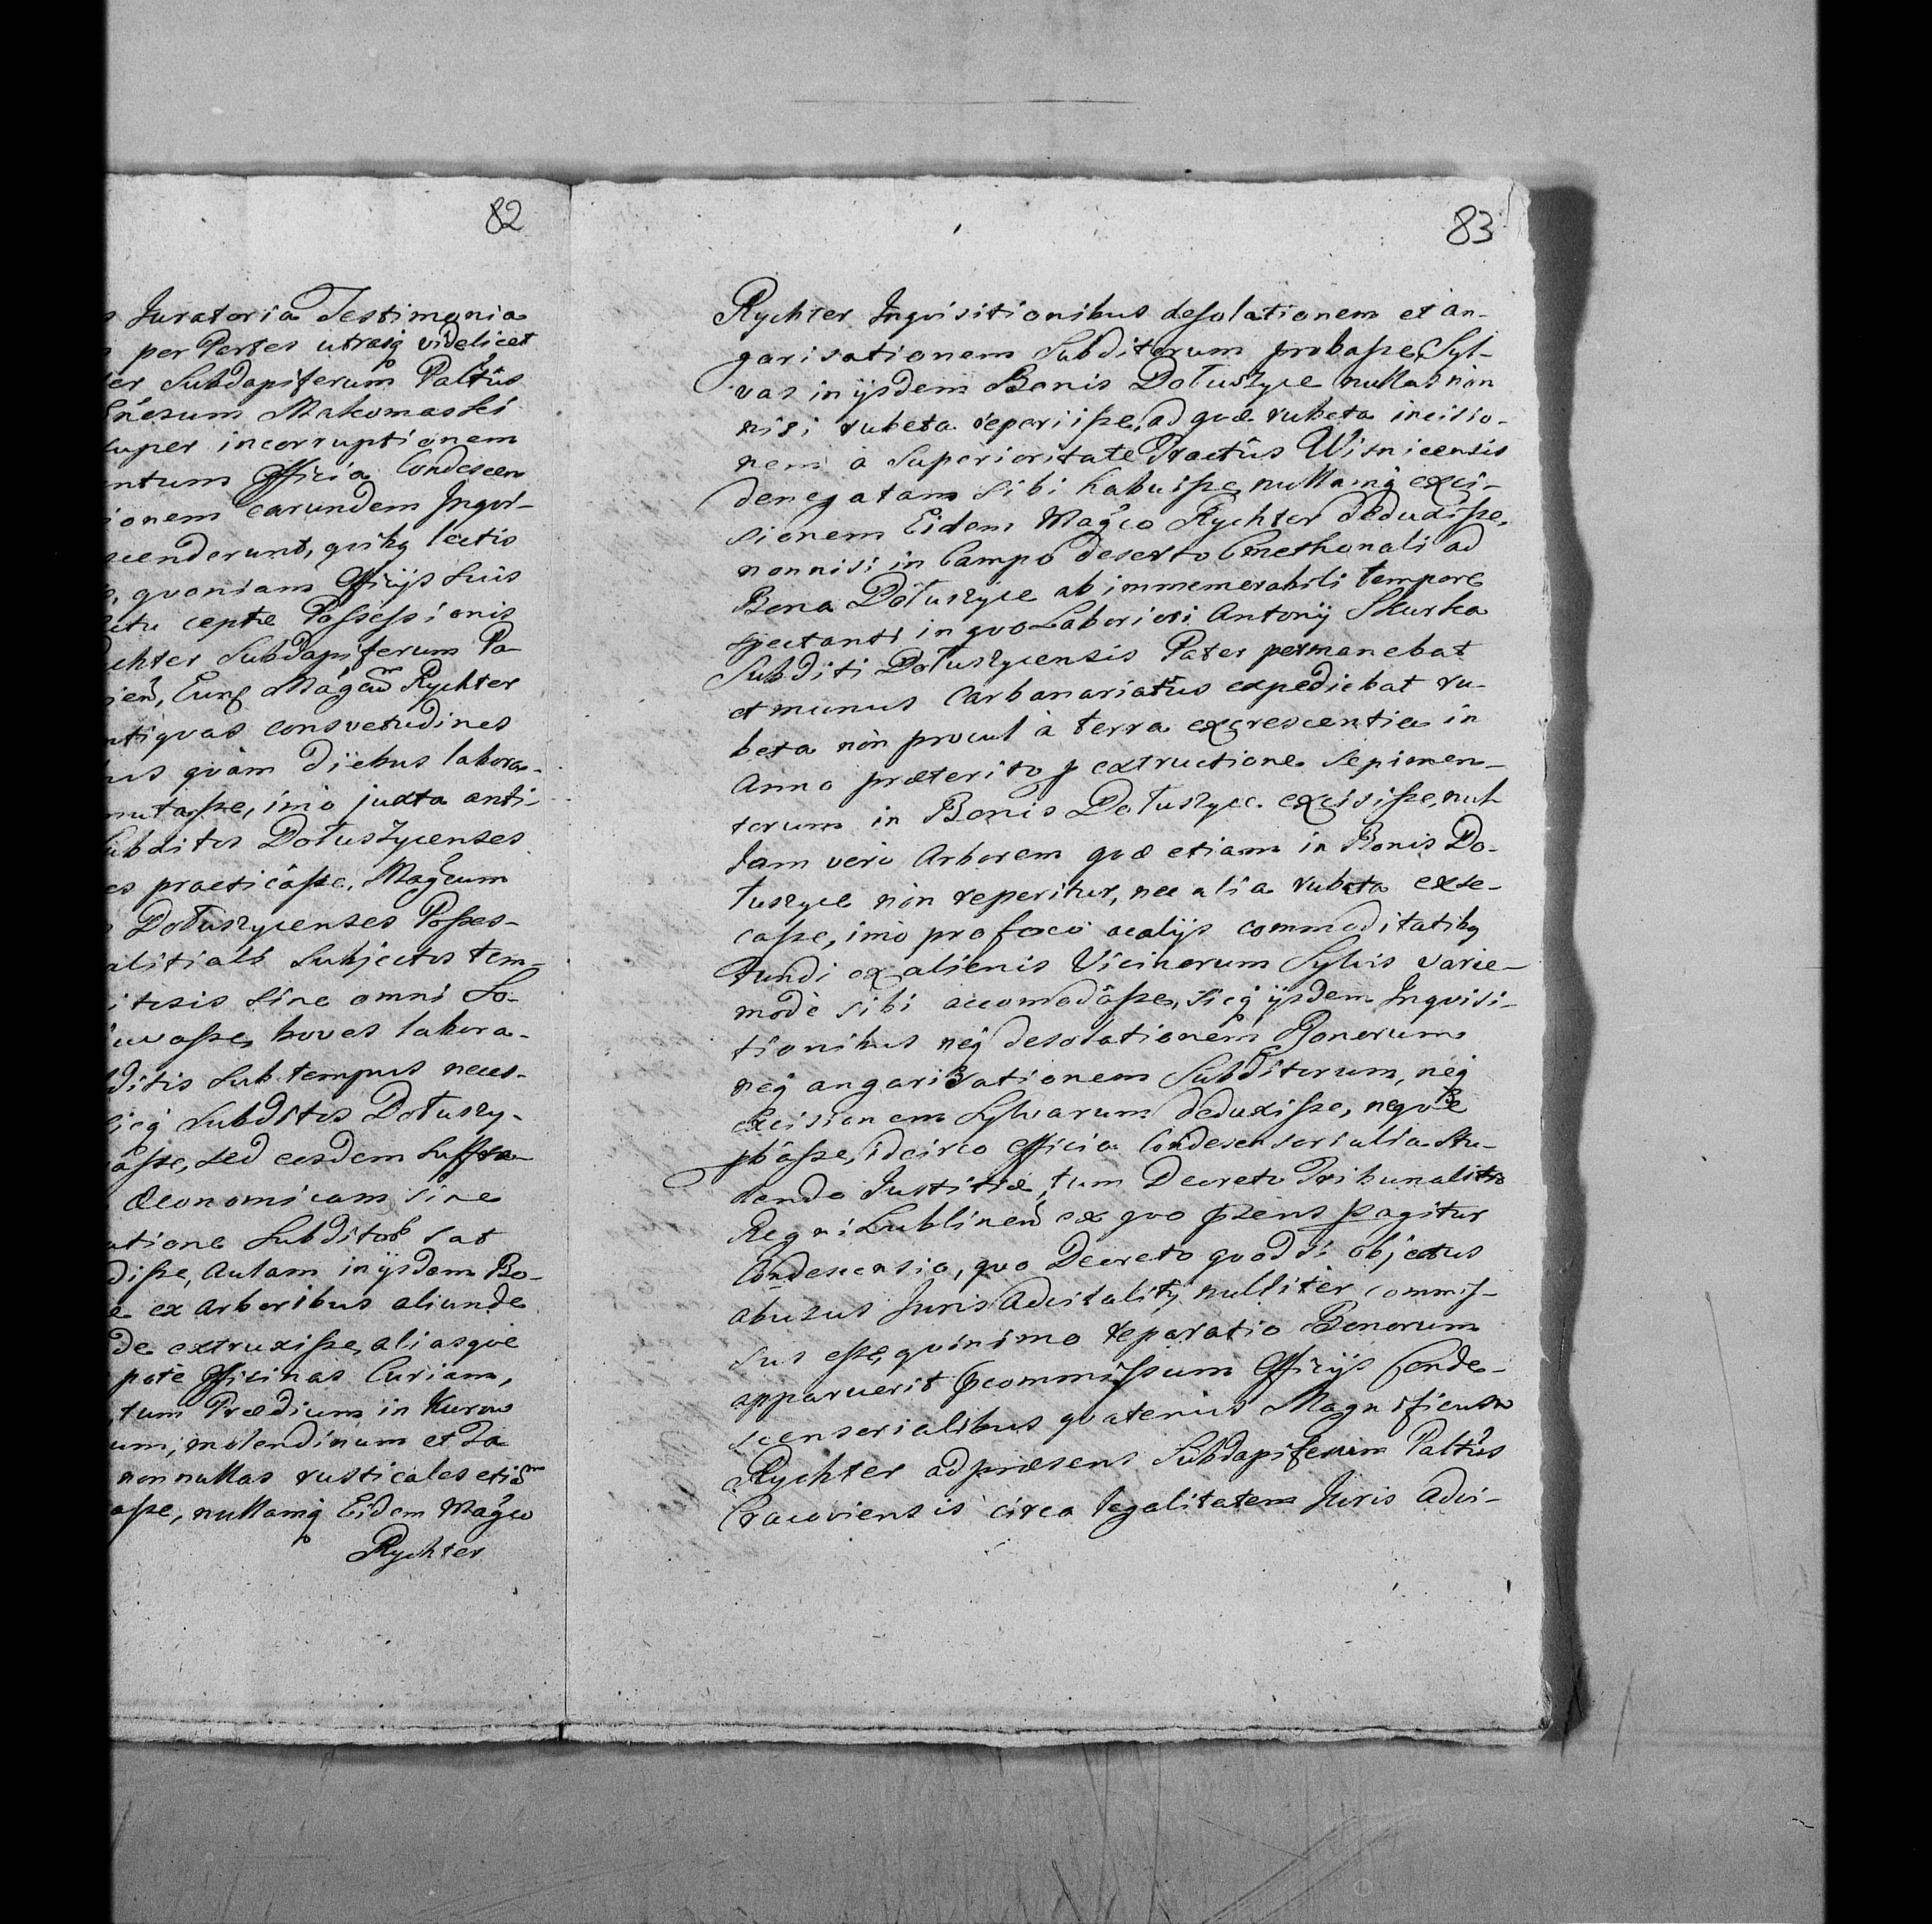 82
Juratoria Testimonia
per Partes utrasq videlicet
Subdapiferum Palt̃ûs
Makomaski
super incorruptionem
Officia Condescen
earundem Inqvi-
qvibq lectis
qvoniam Officijs suis
ceptæ Possessionis
Subdapiferum Pa-
Eunq Mag̃cũm Rychter
consvetudines
qvàm Diebus labora-
imò juxta anti-
Dołuszycenses
practicâsse, Mag̃cum
Dołuszycenses Posses-
Subjectos tem-
sine omni So-
boves labora-
sub tempus neces-
Subditos Dołuszy-
sed eosdem suffra-
Œconomicam sine
Subditor̃ sat
Aulam in ijsdem Bo-
ex Arboribus aliunde
extruxisse, aliasqve
Officinas Curiam,
Prædium in Kurow
molendinum et Ta
nonnullas rusticales etiam
nullamq Eidem Mag̃co
Rychter
83
Rychter Inqvisitionibus desolationem et an-
garisationem Subditorum probasse, Syl-
vas in ijsdem Bonis Dołuszyce nullas nòn
nisi rubeta reperiisse, ad qvæ rubeta incisio-
nem a Superioritate Tractûs Wisnicensis
denegatam sibi habuisse, nullamq exci-
sionem Eidem Mag̃co Rychter deduxisse,
nonnisi in Campo deserto Cmethonali ad
Bona Dołuszyce ab immemerabili tempore
spectanti in qvo Laboriosi Antonij Skurka
Subditi Dołuszycensis Pater permanebat
et munus Carbonariatûs expediebat ru-
beta nòn procul à terra excrescentia in
Anno præterito p extructione Sepimen-
torum in Bonis Dołuszyce excisisse, nul-
lam verò Arborem qvæ etiam in Bonis Do-
łuszyce nòn reperitur, nec alia rubeta exse-
casse, imò pro foco ac alijs commoditatibq
fundi ex alienis Vicinorum Sylvis varie-
modè sibi accomodâsse, sicq ijsdem Inqvisi-
tionibus neq desolationem Bonorum
neq angarisationem Subditorum, neq
excisionem Sylvarum deduxisse, neqve
pbâsse, idcirco Officia Condescensorialia Stu-
dendo Justitiæ, tum Decreto Tribunalitio
Regni Lublineñ ex qvo pzens pagitur
Condescensio, qvo Decreto qvod si objectus
abusus Juris Advitalitij nulliter commis-
sus esse, qvinimo reparatio Bonorum
apparuerit pcommissum Officijs Conde-
scensorialibus qvatenus Magnificum
Rychter ad præsens Subdapiferum Palt̃ûs
Cracoviensis circa legalitatem Juris Advi-